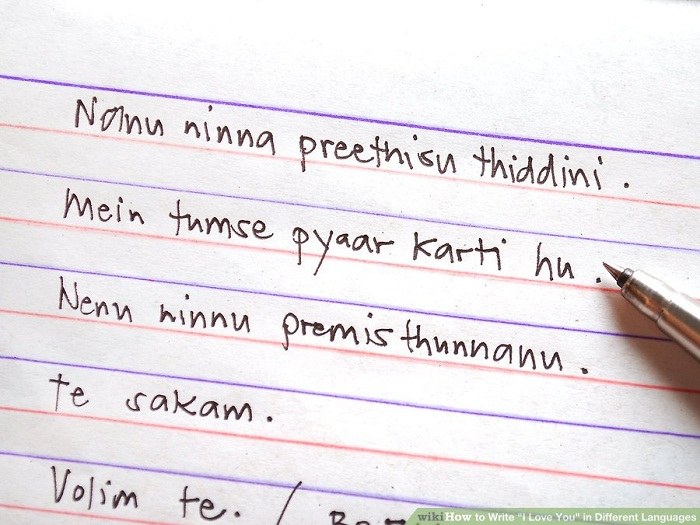 Nanu ninna preethisu thiddini.
Mein tumse pyaar karti hu.
Nenu ninnu premisthunnanu.
te sakam.
Volim te. /
wiki How to Write "I Love You" in Different Languages